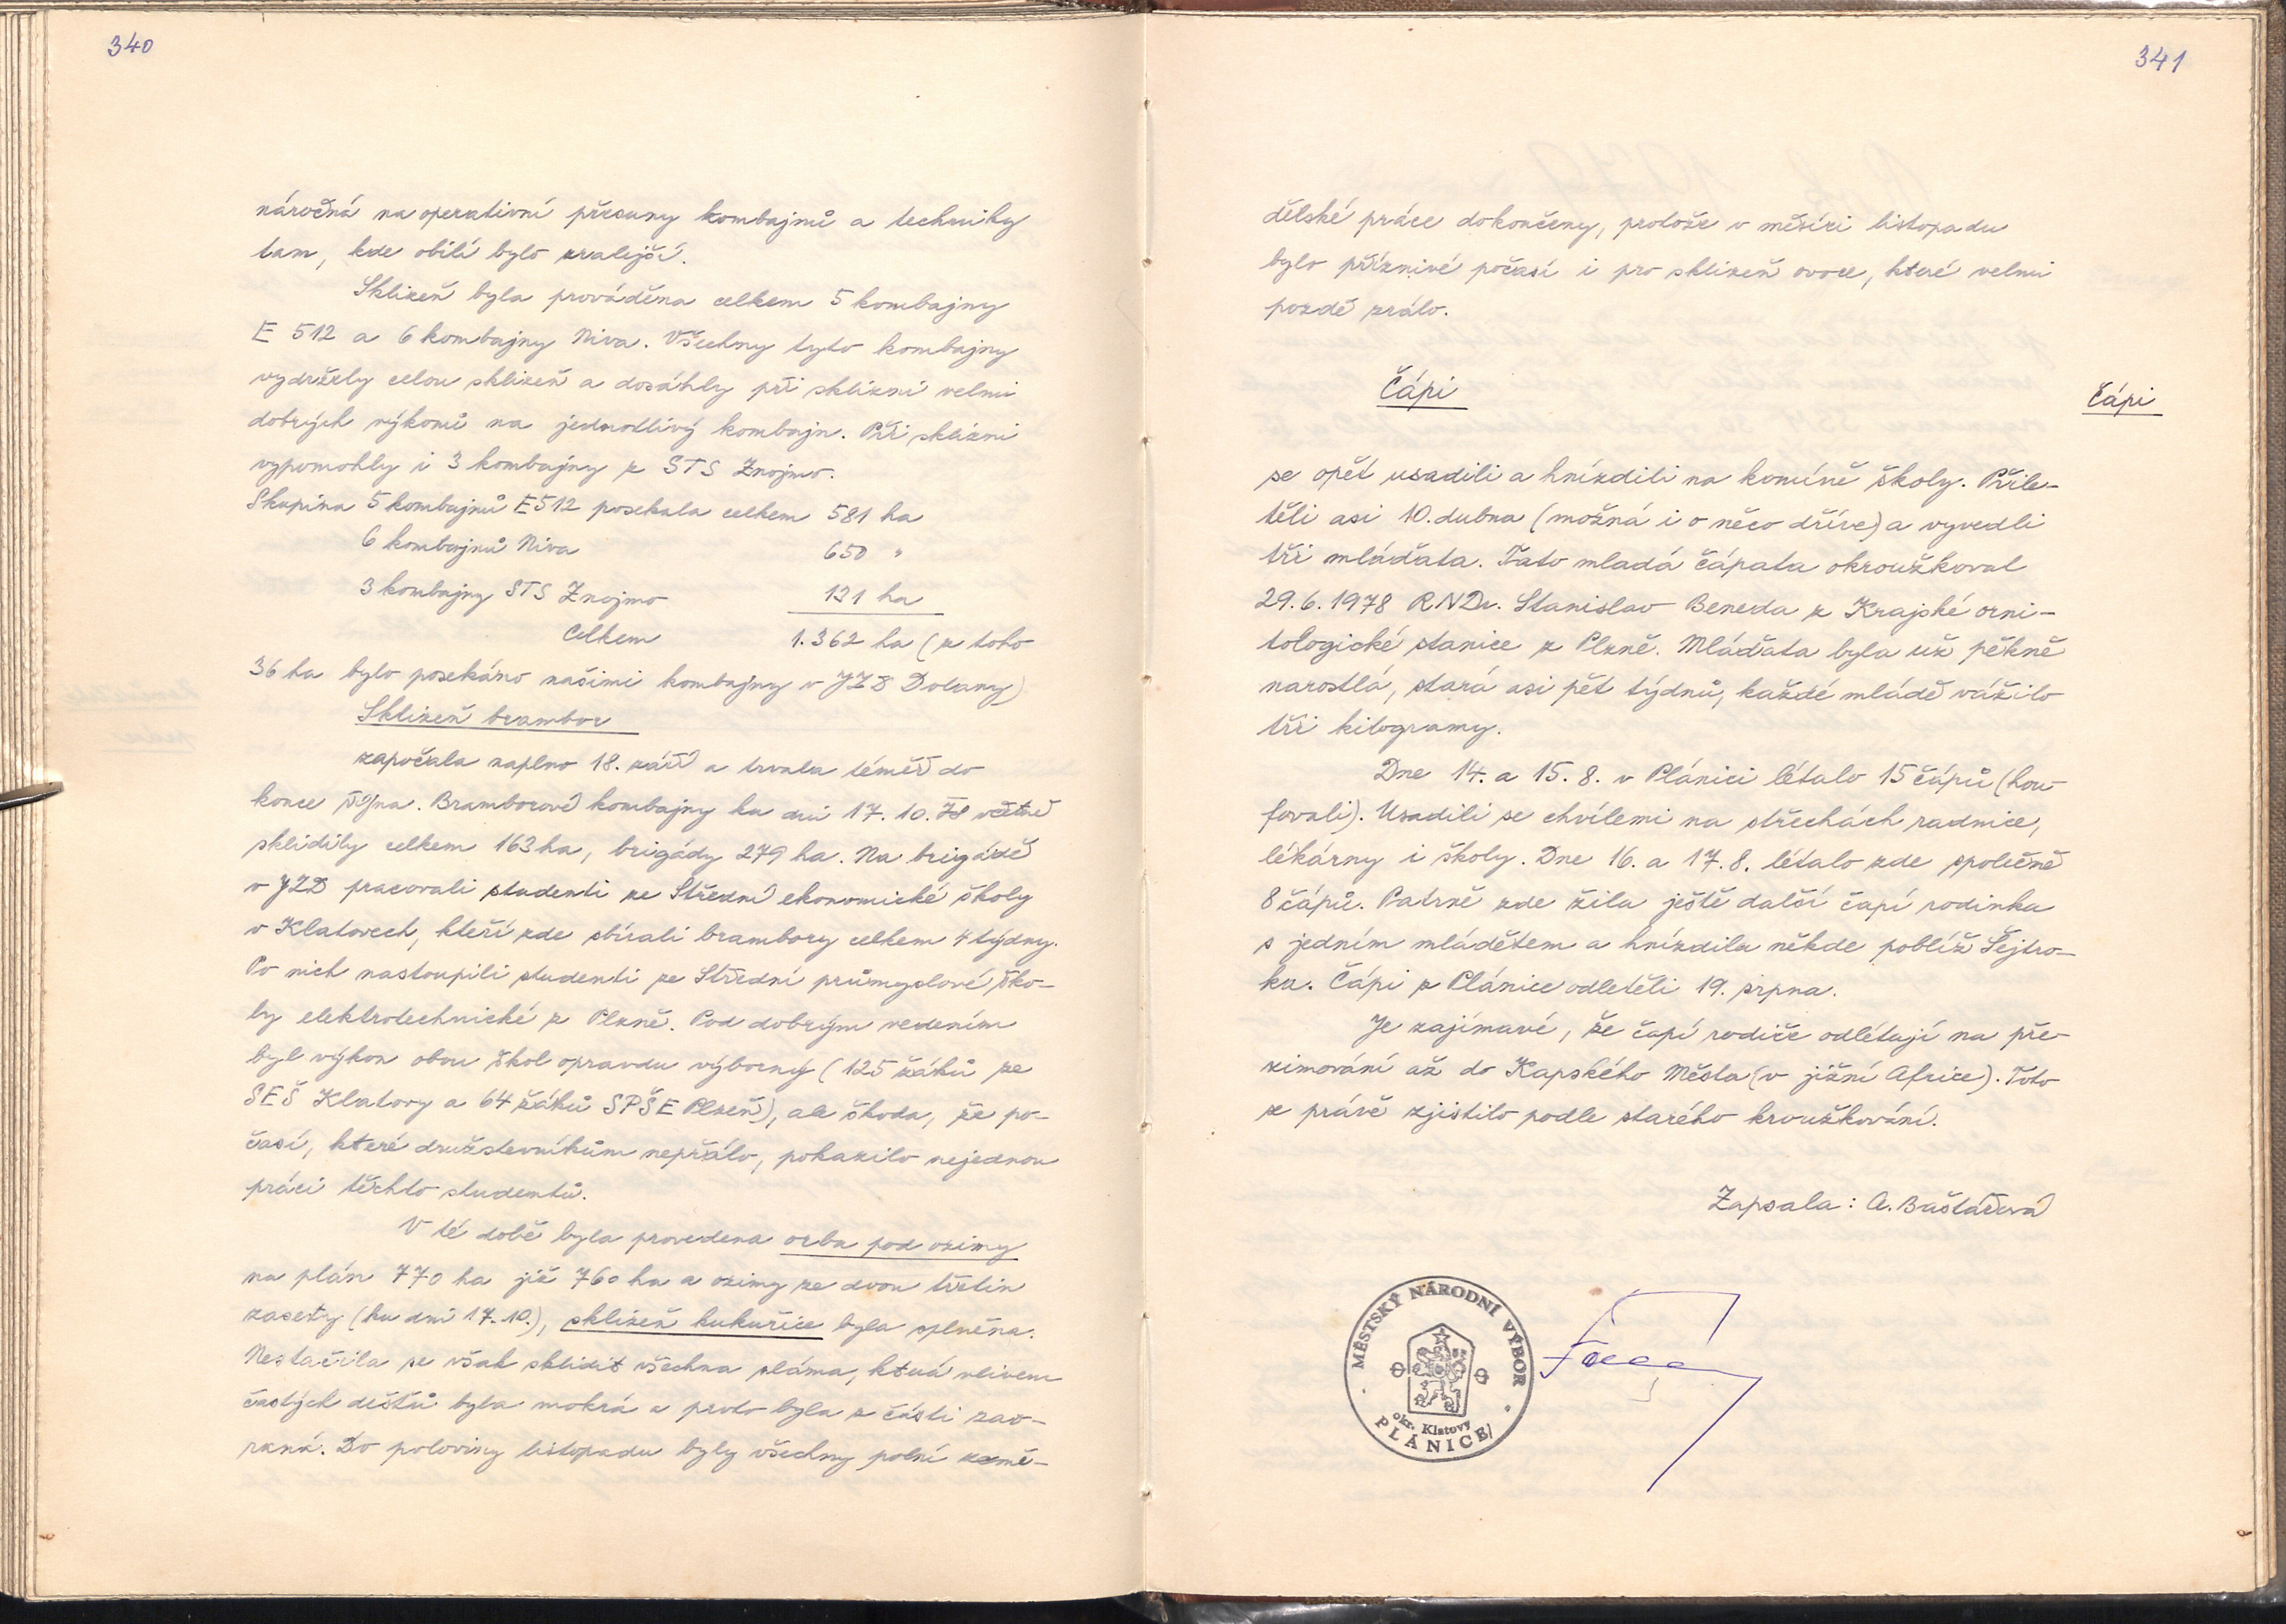 340
náročná na operativní přesuny kombajnů a techniky
tam, kde obilí bylo zralejší.
Sklizeň byla prováděna celkem 5 kombajny
E 512 a 6 kombajny Niva. Všechny tyto kombajny
vydržely celou sklizeň a dosáhly při sklizni velmi
dobrých výkonů na jednotlivý kombajn. Při sklizni
vypomohly i 3 kombajny z STS Znojmo.
Skupina 5 kombajnů E512 posekala celkem 581 ha
6 kombajnů Niva 650 "
3 kombajny STS Znojmo 131 ha
Celkem 1.362 ha (z toho
36 ha bylo posekáno našimi kombajny v JZD Dolany)
Sklizeň brambor
započala naplno 18. září a trvala téměř do
konce října. Bramborové kombajny ku dni 17. 10. 78 včetně
sklidily celkem 163 ha, brigády 279 ha. Na brigádě
v JZD pracovali studenti ze Střední ekonomické školy
v Klatovech, kteří zde sbírali brambory celkem 4 týdny.
Po nich nastoupili studenti ze Střední průmyslové ško-
ly elektrotechnické z Plzně. Pod dobrým vedením
byl výkon obou škol opravdu výborný (125 žáků ze
SEŠ Klatovy a 64 žáků SPŠE Plzeň), ale škoda, že po-
časí, které družstevníkům nepřálo, pokazilo nejednou
práci těchto studentů.
V té době byla provedena orba pod ozimy
na plán 770 ha již 760 ha a ozimy ze dvou třetin
zasety (ku dni 17. 10.), sklizeň kukuřice byla splněna.
Nestačila se však sklidit všechna sláma, která vlivem
častých dešťů byla mokrá a proto byla z části zao-
raná. Do poloviny listopadu byly všechny polní země-
341
dělské práce dokončeny, protože v měsíci listopadu
bylo příznivé počasí i pro sklizeň ovoce, které velmi
pozdě zrálo.
Čápi
Čápi
se opět usadili a hnízdili na komíně školy. Přile-
těli asi 10. dubna (možná i o něco dříve) a vyvedli
tři mláďata. Tato mladá čápata okroužkoval
29. 6. 1978 RNDr. Stanislav Beneda z Krajské orni-
tologické stanice z Plzně. Mláďata byla už pěkně
narostlá, stará asi pět týdnů, každé mládě vážilo
tři kilogramy.
Dne 14. a 15. 8. v Plánici létalo 15 čápů (hou-
fovali). Usadili se chvílemi na střechách radnice,
lékárny i školy. Dne 16. a 17. 8. létalo zde společně
8 čápů. Patrně zde žila ještě další čapí rodinka
s jedním mládětem a hnízdila někde poblíž Šejtro-
ku. Čápi z Plánice odletěli 19. srpna.
Je zajímavé, že čapí rodiče odlétají na pře-
zimování až do Kapského Města (v jižní Africe). Toto
se právě zjistilo podle starého kroužkování.
Zapsala: A. Baštářová
MĚSTSKÝ NÁRODNÍ VÝBOR
okr. Klatovy
PLÁNICE